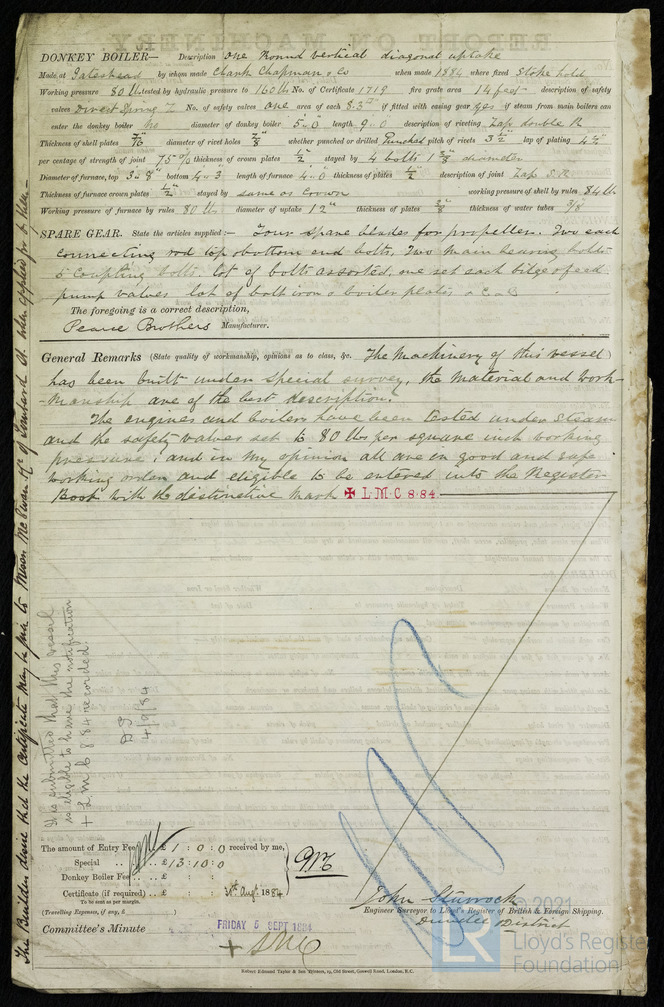 DONKEY BOILER— Description One Round vertical diagonal uptake
Made at Gateshead by whom made Clark Chapman & Co when made 1884 where fixed Stoke hold
Working pressure 80 lb tested by hydraulic pressure to 160 lb No. of Certificate 1719 fire grate area 14 feet description of safety
valves Direct Spring No. of safety valves one area of each 8.3 if fitted with easing gear yes if steam from main boilers can
enter the donkey boiler No diameter of donkey boiler 5-0 length 9-0 description of riveting Lap double R
Thickness of shell plates 7/16" diameter of rivet holes 7/8" whether punched or drilled Punched pitch of rivets 3 1/2" lap of plating 4 1/2"
per centage of strength of joint 75 % thickness of crown plates 1/2" stayed by 4 bolts 1 3/8" diameter
Diameter of furnace, top 3-8" bottom 4-3" length of furnace 4-0" thickness of plates 1/2" description of joint Lap S.R
Thickness of furnace crown plates 1/2" stayed by same as Crown working pressure of shell by rules 84 lb
Working pressure of furnace by rules 80 lb diameter of uptake 12" thickness of plates 3/8" thickness of water tubes 3/8
SPARE GEAR. State the articles supplied:— Four spare blades for propeller. Two each
connecting rod top & bottom end bolts, Two main bearing bolts
6 Coupling bolts. lot of bolts assorted, one set each bilge & feed
pump valves lot of bolt iron & boiler plates
The foregoing is a correct description,
Pearce Brothers Manufacturer.
General Remarks (State quality of workmanship, opinions as to class, &c. The Machinery of this vessel
has been built under special survey, the material and work-
-manship are of the best description.
The engines and boilers have been tested under steam
and the safety valves set to 80 lbs per square inch working
pressure, and in my opinion all are in good and safe
working order and eligible to be entered into the Register
Book with the distinctive mark ✠ L.M.C 8.84.
The Builders desire that the Certificate may be sent to Messrs McEwan of Lombard St when applied for by them —
It is submitted that this vessel
is eligible to have the notification
+ L.M.C 8.84 recorded.
4/9/84
The amount of Entry Fee .. £ 1 : 0 : 0 received by me,
Special .. .. £ 13 : 10 : 0
Donkey Boiler Fee .. £ : :
Certificate (if required) .. £ : : Augt. 1884
To be sent as per margin.
(Travelling Expenses, if any, £ )
John Sturrock
Engineer Surveyor to Lloyd's Register of British & Foreign Shipping.
Dundee District
Committee's Minute FRIDAY 5 SEPT 1884
+ LMC
© 2021
LR
Lloyd's Register
Foundation
Robert Edmund Taylor & Son Printers, 19, Old Street, Goswell Road, London, E.C.